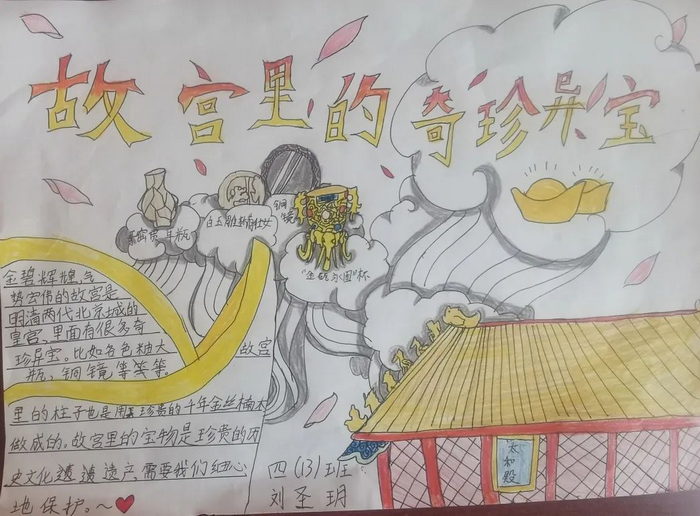 故宫里的奇珍异宝
铜镜
白玉雕
"金瓯永固"杯
金碧辉煌,气
势宏伟的故宫是
明清两代北京城的
皇宫,里面有很多奇
珍异宝。比如各色釉大
瓶、铜镜等等等。
故宫
里的柱子也是用珍贵的千年金丝楠木
做成的。故宫里的宝物是珍贵的历
史文化遗遗遗产,需要我们细心
地保护。~
太和殿
四(13)班
刘圣玥